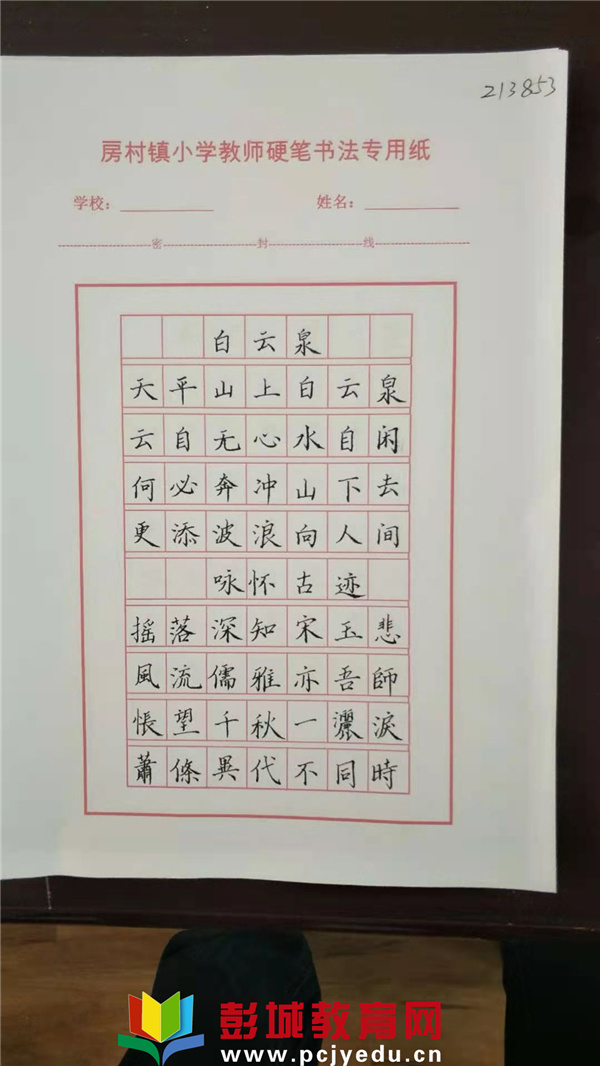 213853
房村镇小学教师硬笔书法专用纸
学校： 姓名：
密 封 线
白云泉
天平山上白云泉
云自无心水自闲
何必奔冲山下去
更添波浪向人间
咏怀古迹
摇落深知宋玉悲
風流儒雅亦吾師
悵望千秋一灑淚
蕭條異代不同時
彭城教育网
www.pcjyedu.cn